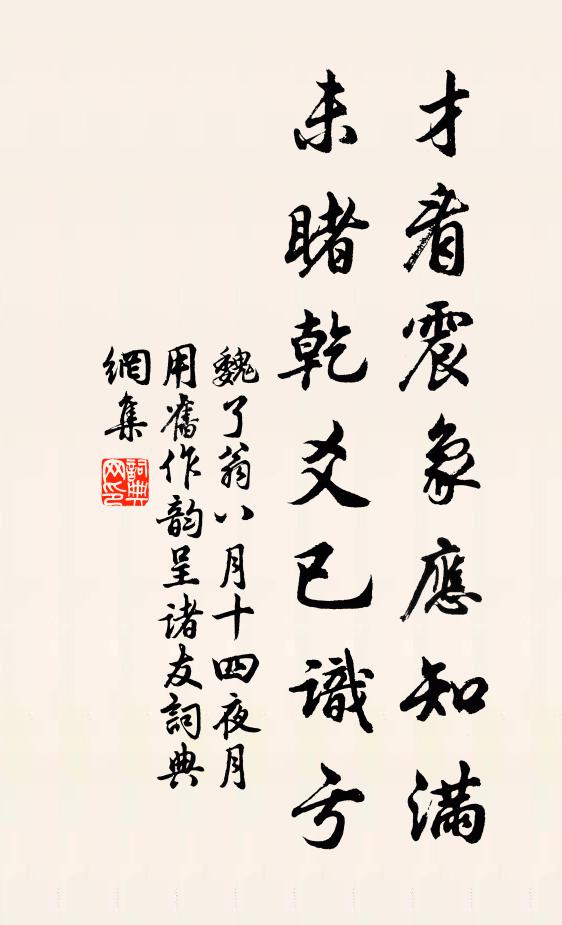 才看震象應知滿
未睹乾爻已識亏
魏了翁八月十四夜月
用舊作韵呈诸友詞典
網集
詞典网印